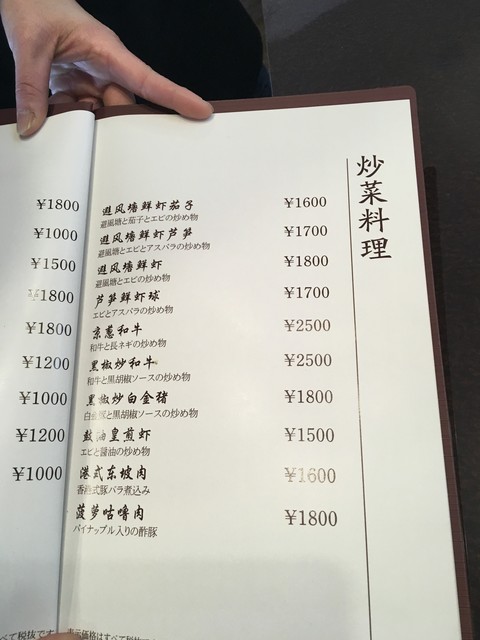 炒菜料理
¥1800
¥1000
¥1500
¥1800
¥1800
¥1200
¥1000
¥1200
¥1000
避风塘鲜虾茄子 ¥1600
避風塘と茄子とエビの炒め物
避风塘鲜虾芦笋 ¥1700
避風塘とエビとアスパラの炒め物
避风塘鲜虾 ¥1800
避風塘とエビの炒め物
芦笋鲜虾球 ¥1700
エビとアスパラの炒め物
京葱和牛 ¥2500
和牛と長ネギの炒め物
黑椒炒和牛 ¥2500
和牛と黒胡椒ソースの炒め物
黑椒炒白金猪 ¥1800
白金豚と黒胡椒ソースの炒め物
鼓油皇煎虾 ¥1500
エビと醤油の炒め物
港式东坡肉 ¥1600
香港式豚バラ煮込み
菠萝咕噜肉 ¥1800
パイナップル入りの酢豚
べて税抜です
表示価格はすべて税抜で